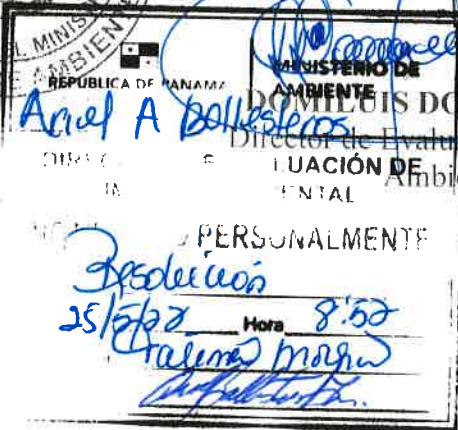 L MINIS
E AMBIEN
REPÚBLICA DE PANAMÁ
MINISTERIO DE
AMBIENTE
DOMILUIS DO
Ariel A Ballesteros
Director de Evalu
LUACIÓN DE
Ambi
ENTAL
PERSONALMENTE
Resolución
25/5/22 Hora 8:52